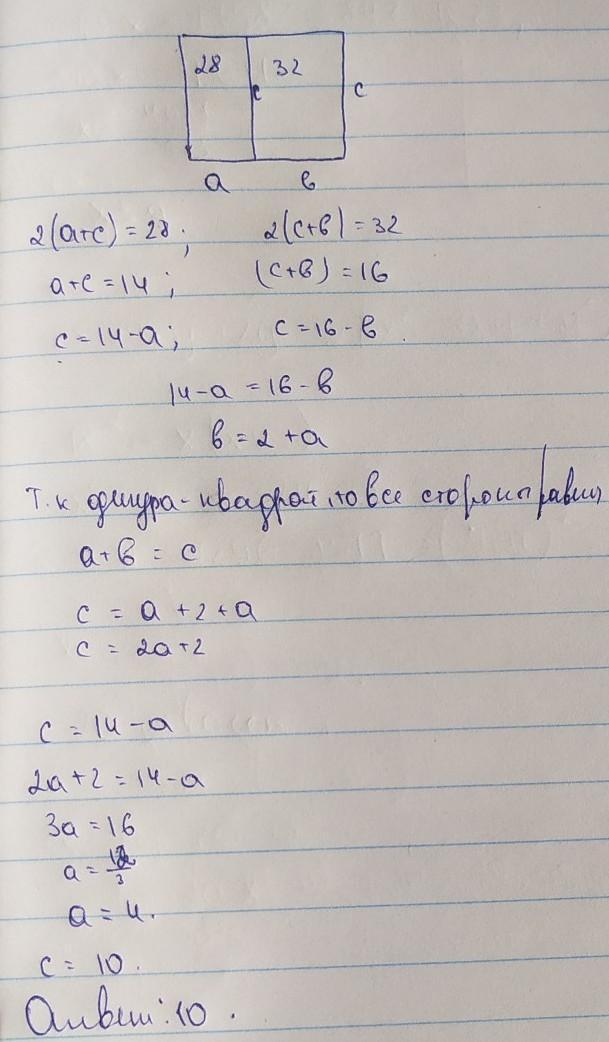 28 32
c c
a в
2(a+c) = 28; 2(c+в) = 32
a+c = 14; (c+в) = 16
c = 14-a; c = 16-в
14-a = 16-в
в = 2+a
Т.к фигура-квадрат, то все стороны равны,
a+в = c
c = a+2+a
c = 2a+2
c = 14-a
2a+2 = 14-a
3a = 16
a = 12/3
a = 4.
c = 10.
Ответ: 10.